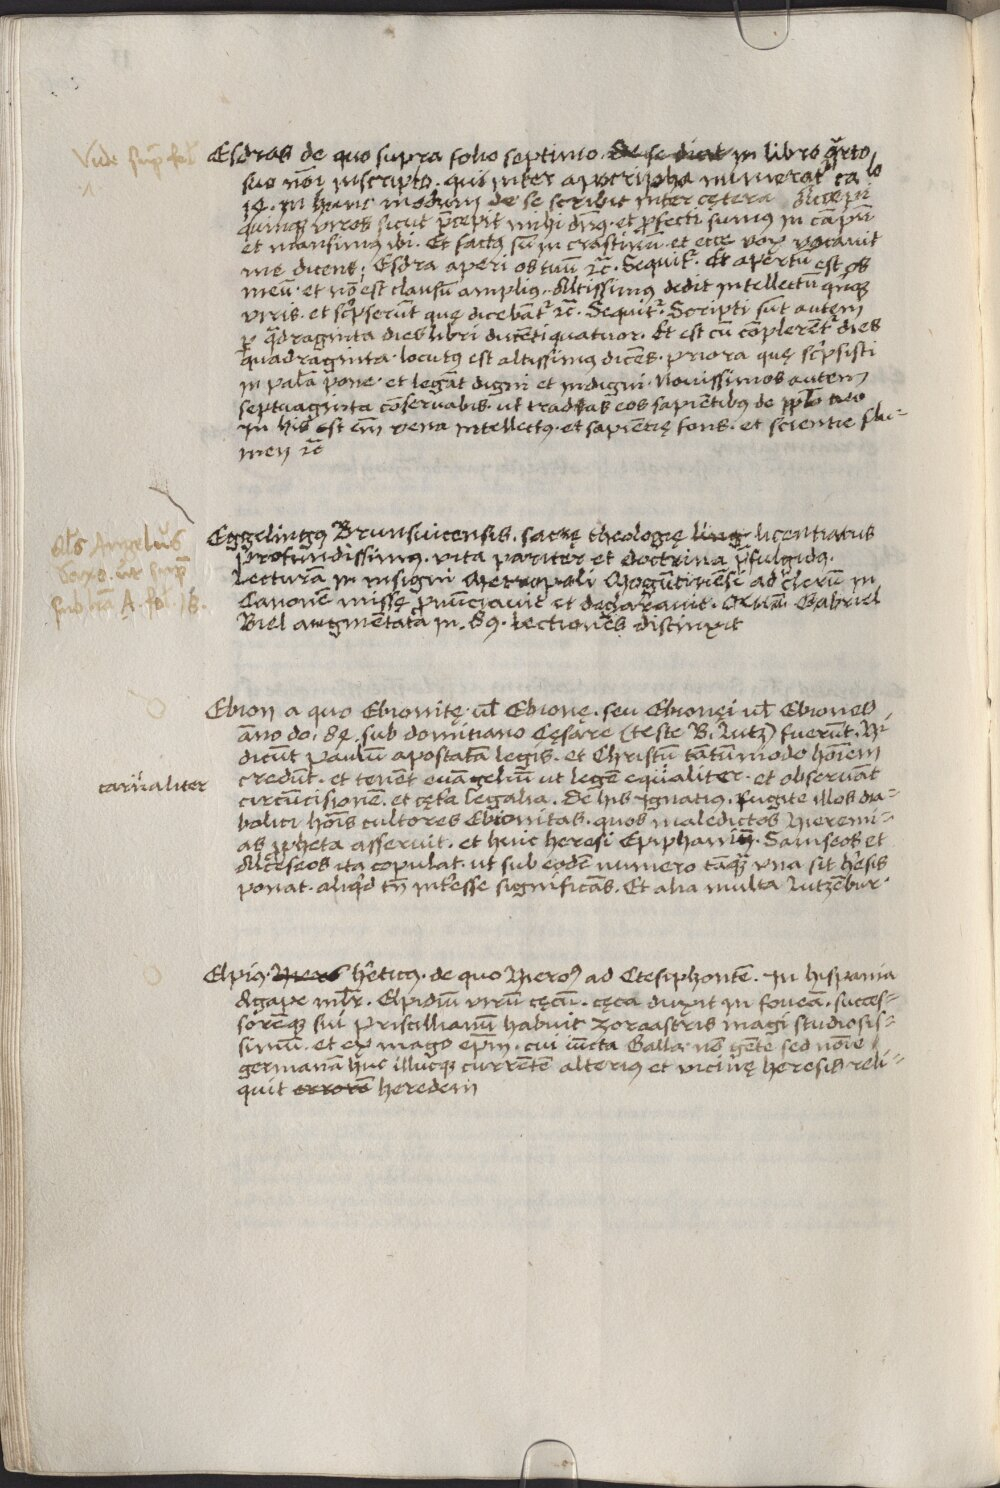 Vide sup̄ fol̄
Esdras de quo supra folio septimo. De se dicit in libro q̄rto
suo nōi inscripto. qui inter apocripha numerat᷑ ca̅lo
14. in hunc modum de se scribit inter cętera Accepi
quinqꝫ viros sicut p̄cepit mihi dn̄s. et ꝓfecti sumꝰ in cāpū
et mansimꝰ ibi. Et factꝰ sū in crastinū. et ecce vox vocauit
me dicens. Esdra aperi os tuū ⁊c̄. Sequit᷑. Et apertū est os
meū. et nō est clausū ampliꝰ. Altissimus dedit intellectū quinqꝫ
viris. et scͥpserūt quę dicebāt᷑ ⁊c̄. Sequit᷑. Scripti sūt autem
ꝑ q̄draginta dies libri ducēti quatuor. Et est cū cōplerent᷑ dies
quadraginta. locutꝰ est altissimus dicēs. priora quę scͥpsisti
in palā pone. et legāt digni et indigni. Nouissimos autem
septuaginta cōseruabis. ut tradas eos sapiētibꝰ de pplo tuo
In his est em̄ vena intellectꝰ. et sapientię fons. et scientie flu-
men ⁊c̄
Als Angelus
Saxo. ut sup̄
sub lr̄a A. fol. 18.
Eggelingꝰ Brunsuicensis. sacrę theologię ling licentiatus
profundissimus. vita pariter et doctrina p̄fulgidꝰ.
Lecturam in insigni Metropoli Mogūtinensi ad clerū in
Canonē missę ꝓnūciauit et declarauit. Gabriel
Biel augmētatā in .89. lectiones distinxit
Ebion a quo Ebionitę. ul̄ Ebionę. seu Ebionęi ul̄ Ebiones
āno do. 84. sub domitiano Cęsare (teste B. Lutz) fuerūt. Hi
dicūt Paulū apostatā legis. et Christū tātūmodo hoīem
credūt. et tenēt euāgeliū ut legē equaliter. et obseruāt
carnaliter
circūcisionē. et cęta legalia. De his Ignatius. Fugite illos dia-
bolici hoīs cultores Ebionitas. quos maledictos Hieremi-
as ꝓpheta asseruit. et huic heresi Epiphaniū. Samseos et
Alceseos ita copulat. ut sub eodē numero tāqꝫ una sit hēsis
ponat. aliqͥd tn̄ inteesse significās. Et alia multa Lutzēbur.
Elpiꝰ. Hiero hēticꝰ. de quo Hiero᷑ ad Ctesiphontē. In hispania
Agape mlr̄. Elpidiū virū cęcū. cęca duxit in foueā. succes-
sorēqꝫ sui Priscillianū habuit Zoroastris magi studiosis-
simū. et ex mago ep̄m. cui iūcta Galla. nō gēte sed noīe
germanā huc illucqꝫ currentē alterius et vicinę heresis reli-
quit errorē heredem